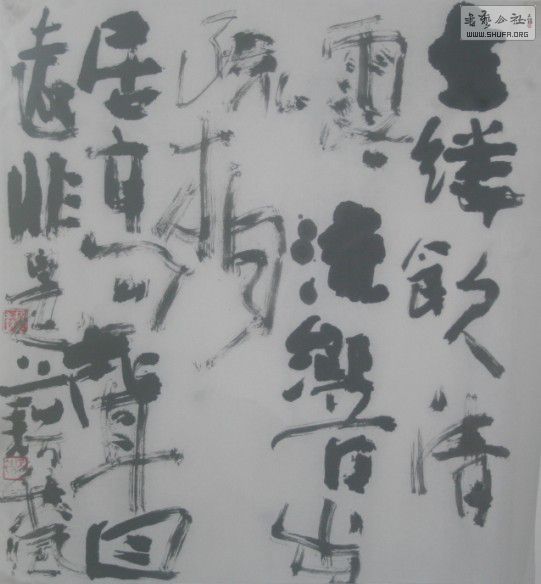 垂緌飲清
露流響出
疏桐
居高聲自
遠非是藉秋風
書藝公社
WWW.SHUFA.ORG